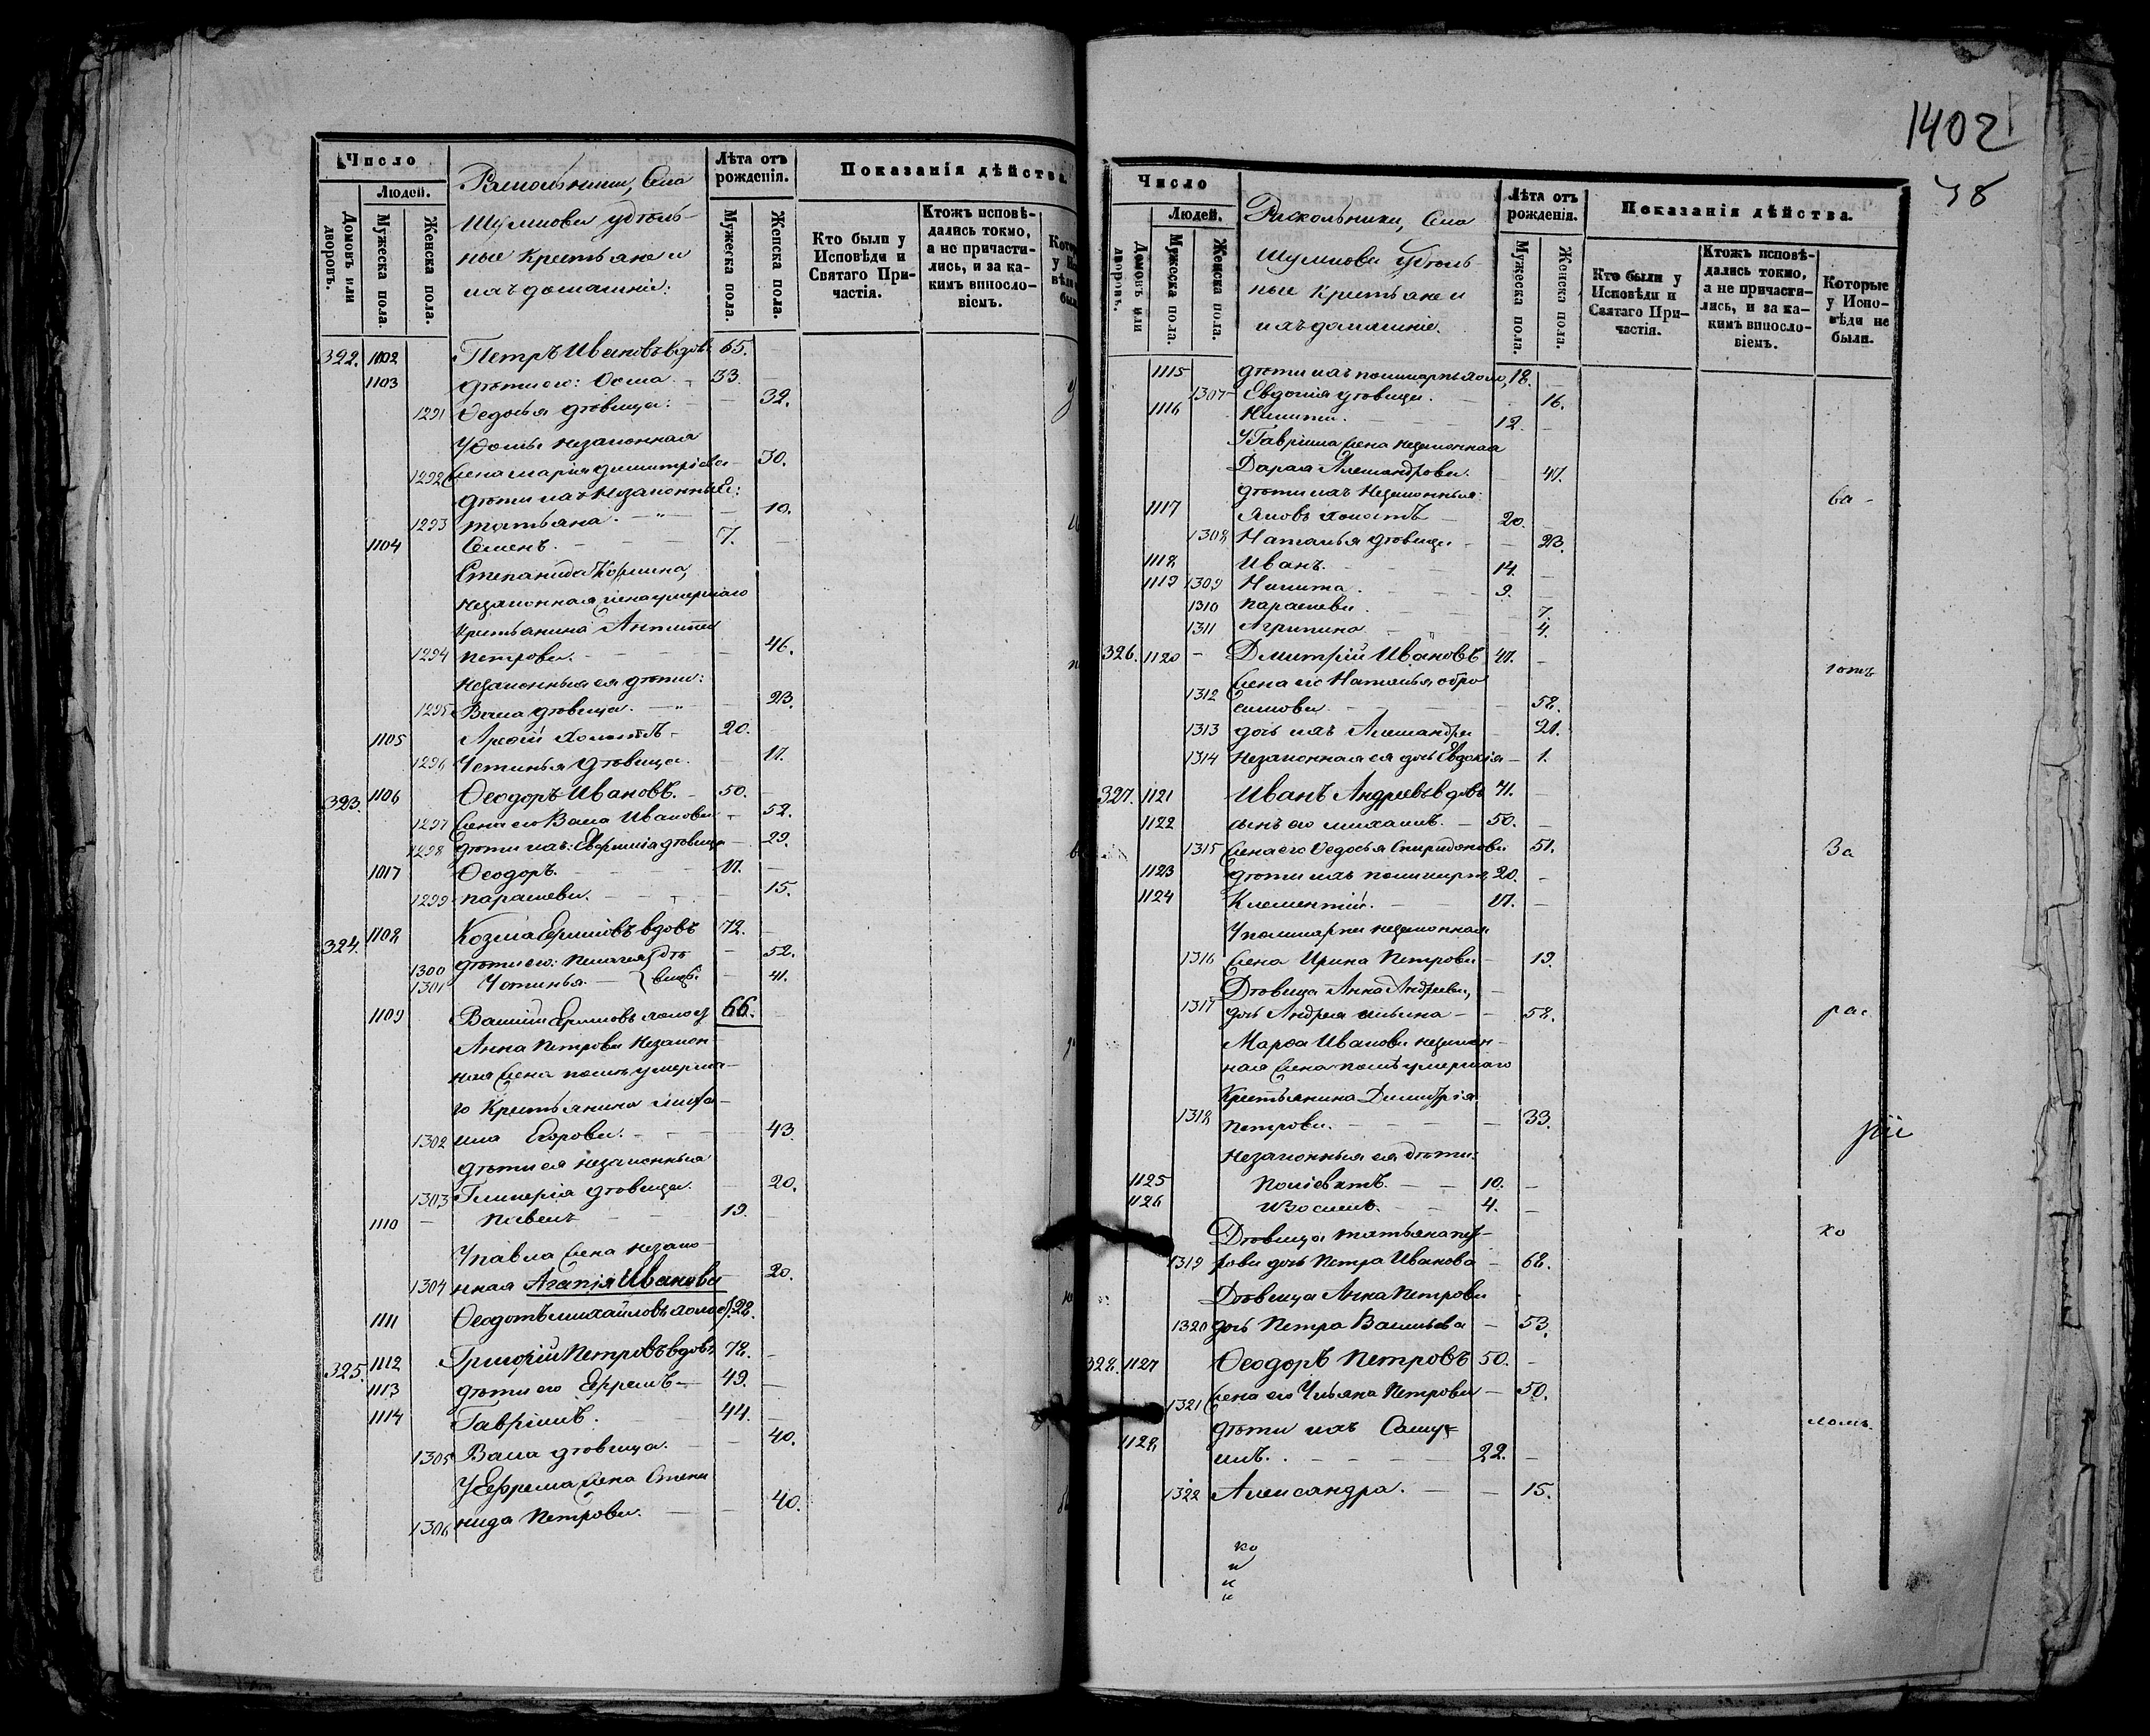 Число
Людей.
Домовъ или дворовъ.
Мужеска пола.
Женска пола.
Раскольники, Села
Шумнова удѣль-
ные Крестьяне и
ихъ домашніе:
Лѣта отъ рожденія.
Мужеска пола.
Женска пола.
Показанія дѣйства.
Кто были у Исповѣди и Святаго Причастія.
Ктожъ исповѣдались токмо, а не причастились, и за какимъ винословіемъ.
322. 1102 Петръ Ивановъ вдовъ 65.
1103 дѣти его: Ѳома 33.
1291 Ѳедосья дѣвица: 32.
У Ѳомы незаконная
1292 жена Марія Димитріева 30.
дѣти ихъ незаконныя:
1293 Татьяна. 10.
1104 Семенъ. 7.
Степанида
незаконная жена умершаго
крестьянина Антипа
1294 Петрова. 46.
Незаконныя ея дѣти:
1295 Васса дѣвица. 23.
1105 Арефій холостъ 20.
1296 Устинья дѣвица. 17.
323. 1106 Ѳеодоръ Ивановъ. 50.
1297 жена его Васса Иванова 52.
1298 дѣти ихъ: Евфимія дѣвица 29.
1017 Ѳеодоръ. 17.
1299 Параскева. 15.
324. 1108 Козма Ермиловъ вдовъ 72.
1300 дѣти его: Пелагея дѣ- 52.
1301 Устинья. вицы 41.
1109 Василій Ермиловъ холост 66.
Анна Петрова незакон-
ная жена послѣ умерша-
го Крестьянина Миха-
1302 ила Егорова. 43.
дѣти ея незаконныя
1303 Гликерія дѣвица. 20.
1110 Павелъ 19.
У Павла жена незако-
1304 нная Агапія Иванова 20.
1111 Ѳеодотъ Михайловъ холост 28.
325. 1112 Григорій Петровъ вдовъ 78.
1113 дѣти его Ефремъ 49.
1114 Гавріилъ. 44.
1305 Васса дѣвица. 40.
У Ефрема жена Степа
1306 нида Петрова. 40.
1402
48
Число
Людей.
Домовъ или дворовъ.
Мужеска пола.
Женска пола.
Раскольники, Села
Шумнова Удѣль-
ные Крестьяне и
ихъ домашніе.
Лѣта отъ рожденія.
Мужеска пола.
Женска пола.
Показанія дѣйства.
Кто были у Исповѣди и Святаго Причастія.
Ктожъ исповѣдались токмо, а не причастились, и за какимъ винословіемъ.
Которые у Исповѣди не были.
1115 дѣти ихъ Поликарпъ холо, 18.
1307 Евдокія дѣвица. 16.
1116 Никита. 12.
У Гавріила жена незаконная
Дарья Александрова. 47.
дѣти ихъ незаконныя: ва-
1117 Яковъ холостъ 20.
1308 Наталья дѣвица 23.
1118 Иванъ. 14.
1119 1309 Никита. 9.
1310 Параскева. 7.
1311 Агрипина 4.
326. 1120 Дмитрій Ивановъ 47.
жена его Наталья Абро
1312 симова 58.
1313 дочь ихъ Александра 21.
1314 незаконная ея дочь Евдокія 1.
327. 1121 Иванъ Андреевъ вдовъ 71.
1122 сынъ его Михаилъ. 50.
1315 жена его Ѳедосья Спиридонова 51. За
1123 дѣти ихъ Поликарпъ 20.
1124 Клементій. 17.
У Поликарпа незаконная
1316 жена Ирина Петрова 19.
Дѣвица Анна Андреева,
1317 дочь Андрея Ильина 58. рас
Марѳа Иванова незакон-
ная жена послѣ умершаго
Крестьянина Димитрія
1318 Петрова. 33.
Незаконныя ея дѣти:
1125 10.
1126 Изосимъ. 4.
Дѣвица Татьяна Пет- ко
1319 рова дочь Петра Иванова 68.
Дѣвица Анна Петрова
1320 дочь Петра Васильева 53.
328. 1127 Ѳеодоръ Петровъ 50.
1321 жена его Ульяна Петрова 50.
дѣти ихъ Саму- ломъ.
1128 илъ. 22.
1322 Александра. 15.